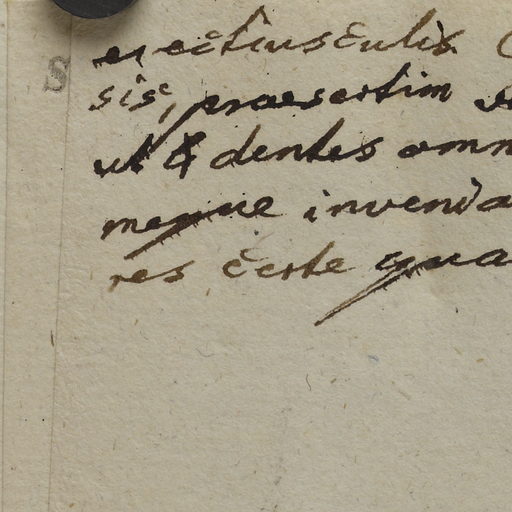 erectiusculis
sis, praesertim
ut & dentes omn
meque invenia
res certe qua
S